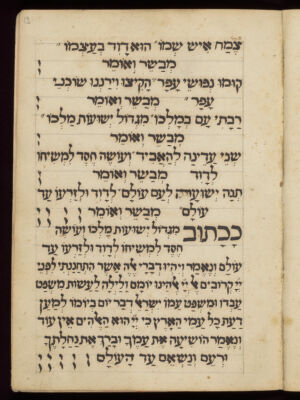 צמח איש שמו הוא דוד בעצמו
מבשר ואומר
קומו כפושי עפר הקיצו ורננו שוכני
עפר מבשר ואומר
רבתי עם במלכו מגדול ישועות מלכו
מבשר ואומר
שני עדינה להאביד ועושה חסד למשיחו
לדוד מבשר ואומר
תנה לעם עולם לדוד ולזרעו עד
עולם מבשר ואומר
ככתוב מגדול ישועות מלכו ועושה
חסד למשיחו לדוד ולזרעו עד
עולם ונאמר ויהיו דברי אלה אשר התחננתי לפני
יי קרובים אל יי יומם ולילה לעשות משפט
עבדו ומשפט עמו ישראל דבר יום ביומו למען
דעת כל עמי הארץ כי יי הוא אין עוד
ונאמר הושיעה את עמך וברך את נחלתך
ורעם ונשאם עד העולם